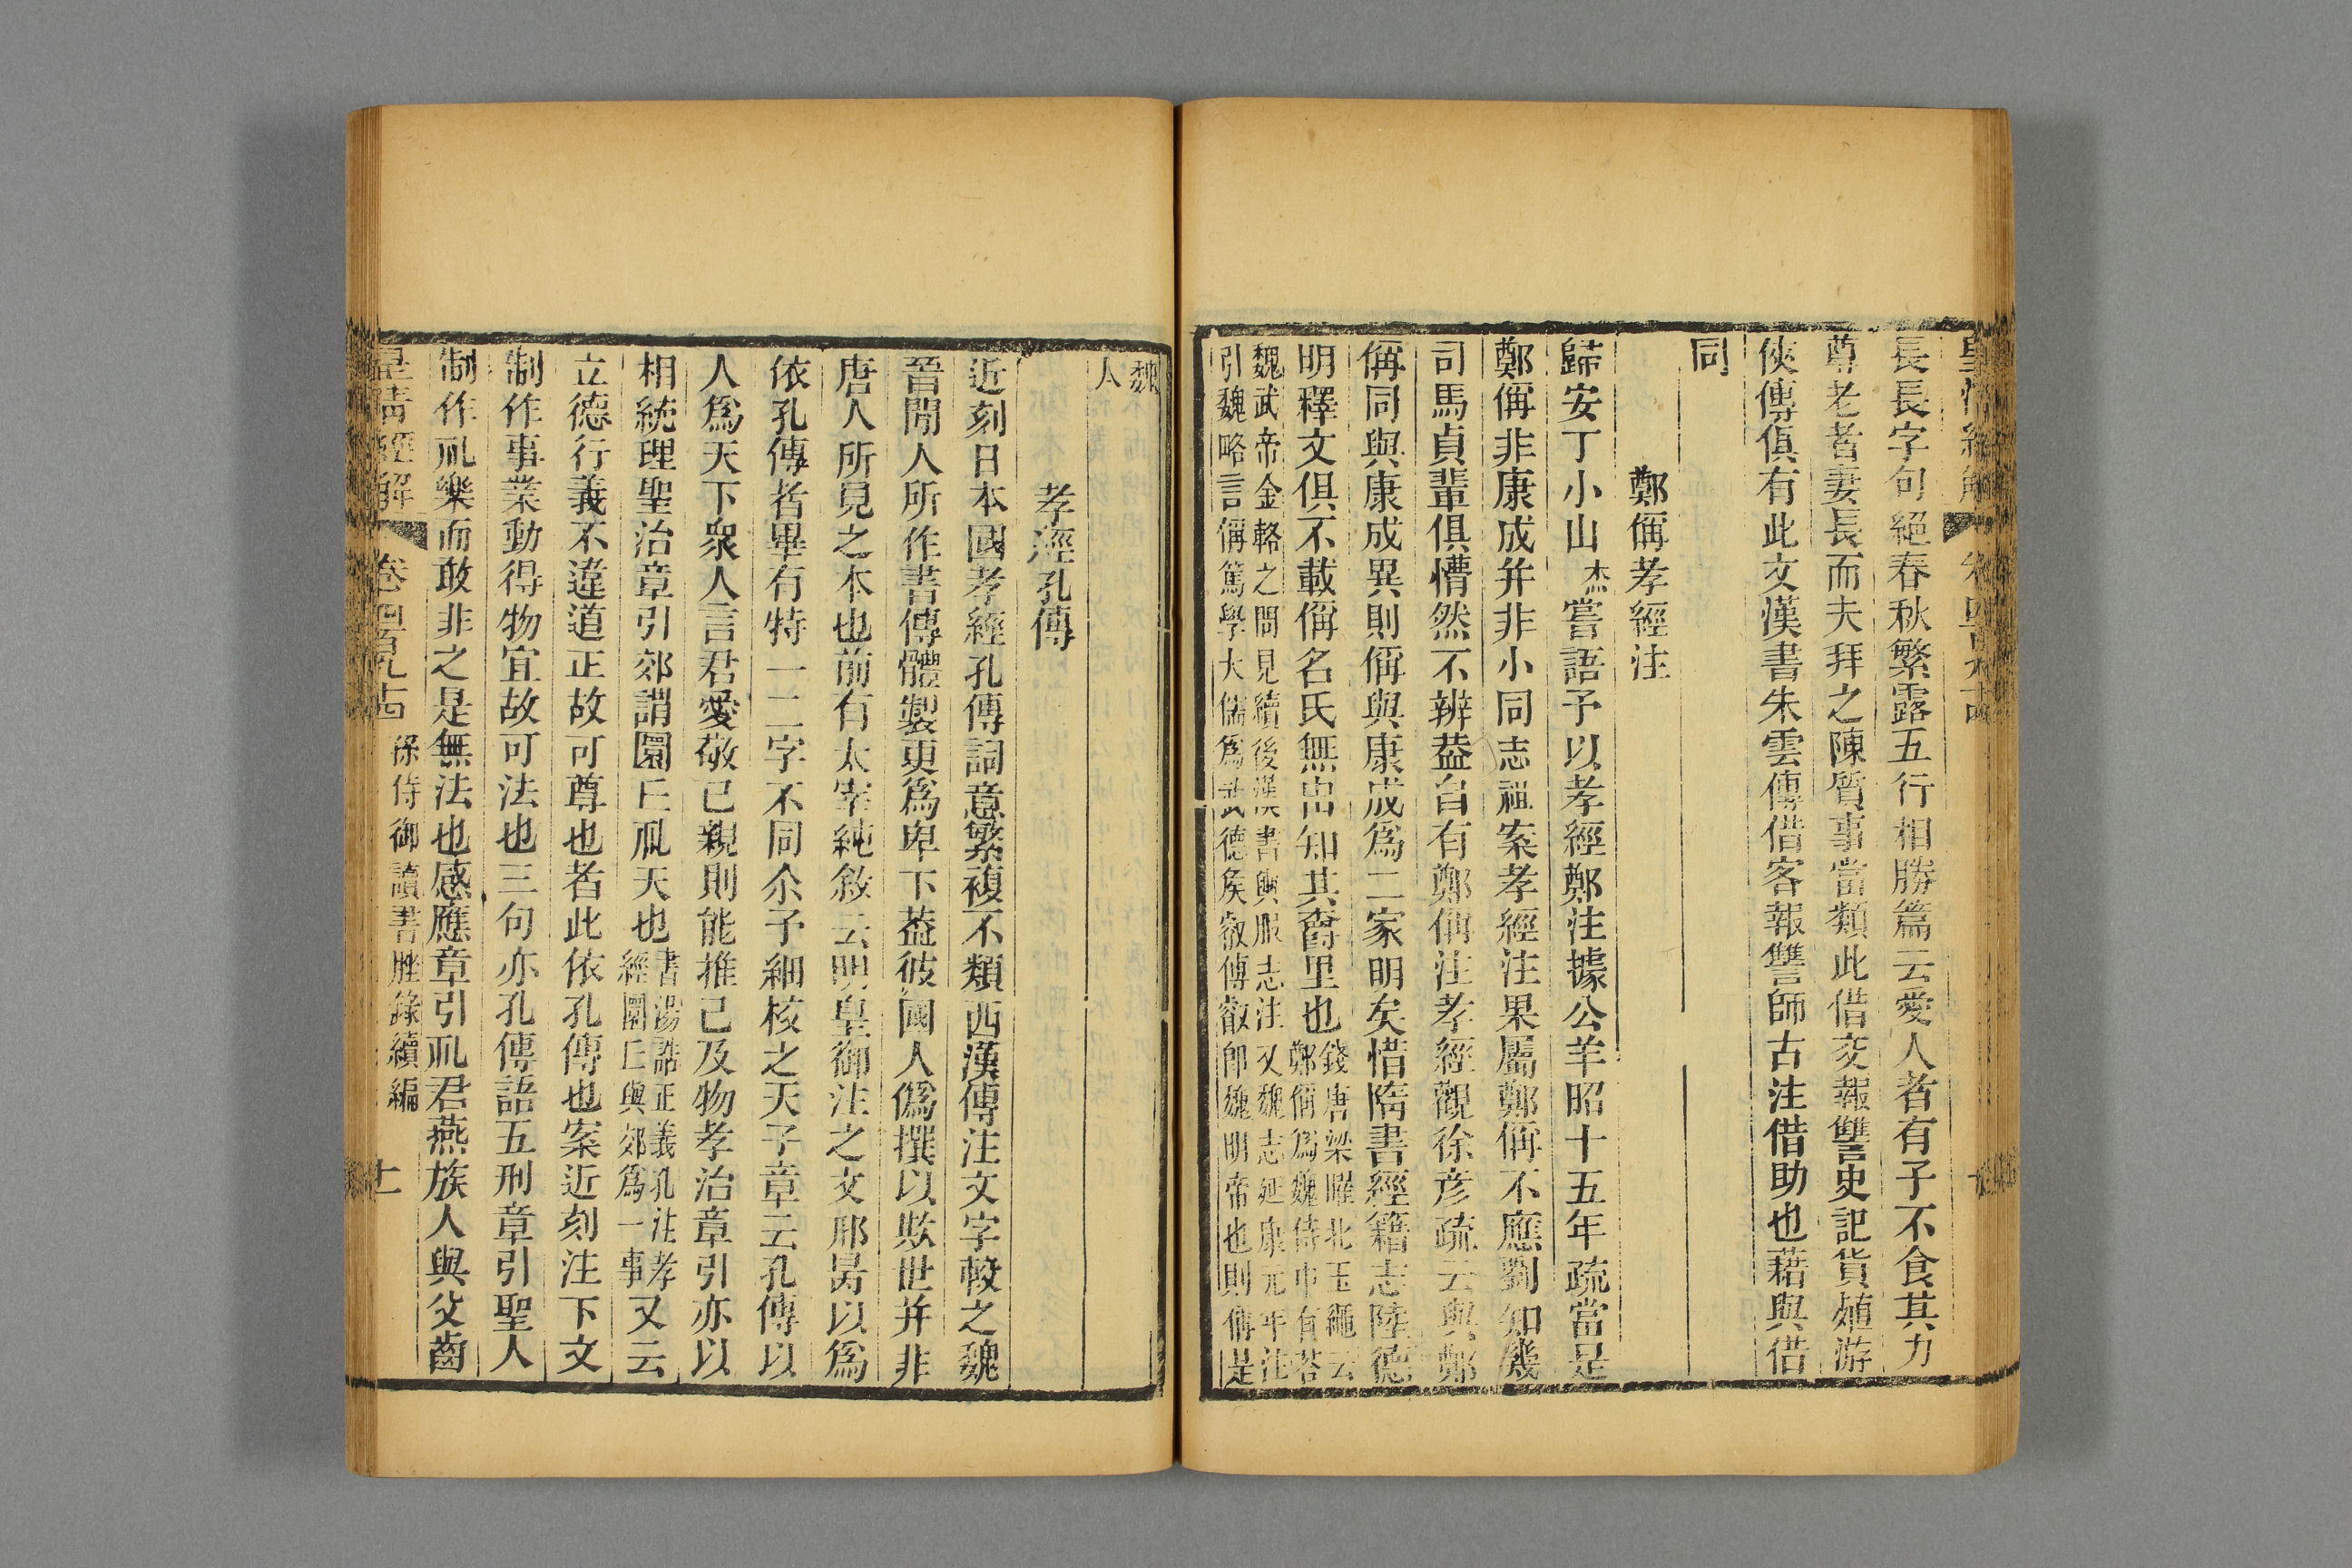 長長字句絕春秋繁露五行相勝篇云愛人者有子不食其力
尊老者妻長而夫拜之陳質事當類此借交報讐史記貨殖游
俠傳俱有此文漢書朱雲傳借客報讐師古注借助也藉與借
同
鄭偁孝經注
歸安丁小山杰嘗語予以孝經鄭注據公羊昭十五年疏當是
鄭偁非康成并非小同志祖案孝經注果屬鄭偁不應劉知幾
司馬貞輩俱懵然不辨葢自有鄭偁注孝經觀徐彦疏云與鄭
偁同與康成異則偁與康成爲二家明矣惜隋書經籍志陸德
明釋文俱不載偁名氏無由知其爵里也錢唐梁曜北玉繩云
鄭偁爲魏侍中有荅
魏武帝金輅之問見續後漢書輿服志注又魏志延康元年注
引魏略言偁篤學大儒爲武德矦叡傅叡卽魏明帝也則偁是
魏
人
孝經孔傳
近刻日本國孝經孔傳詞意繁複不類西漢傳注文字較之魏
晉閒人所作書傳體製更爲卑下葢彼國人僞撰以欺世并非
唐人所見之本也前有太宰純敘云明皇御注之文邢昺以爲
依孔傳者畢有特一二字不同余予細核之天子章云孔傳以
人爲天下衆人言君愛敬己親則能推己及物孝治章引亦以
相統理聖治章引郊謂圜丘祀天也書湯誥正義孔注孝
經圜丘與郊爲一事又云
立德行義不違道正故可尊也者此依孔傳也案近刻注下文
制作事業動得物宜故可法也三句亦孔傳語五刑章引聖人
制作禮樂而敢非之是無法也感應章引禮君燕族人與父齒
皇淸經解
卷四百九十五
孫侍御讀書脞錄續編
十一